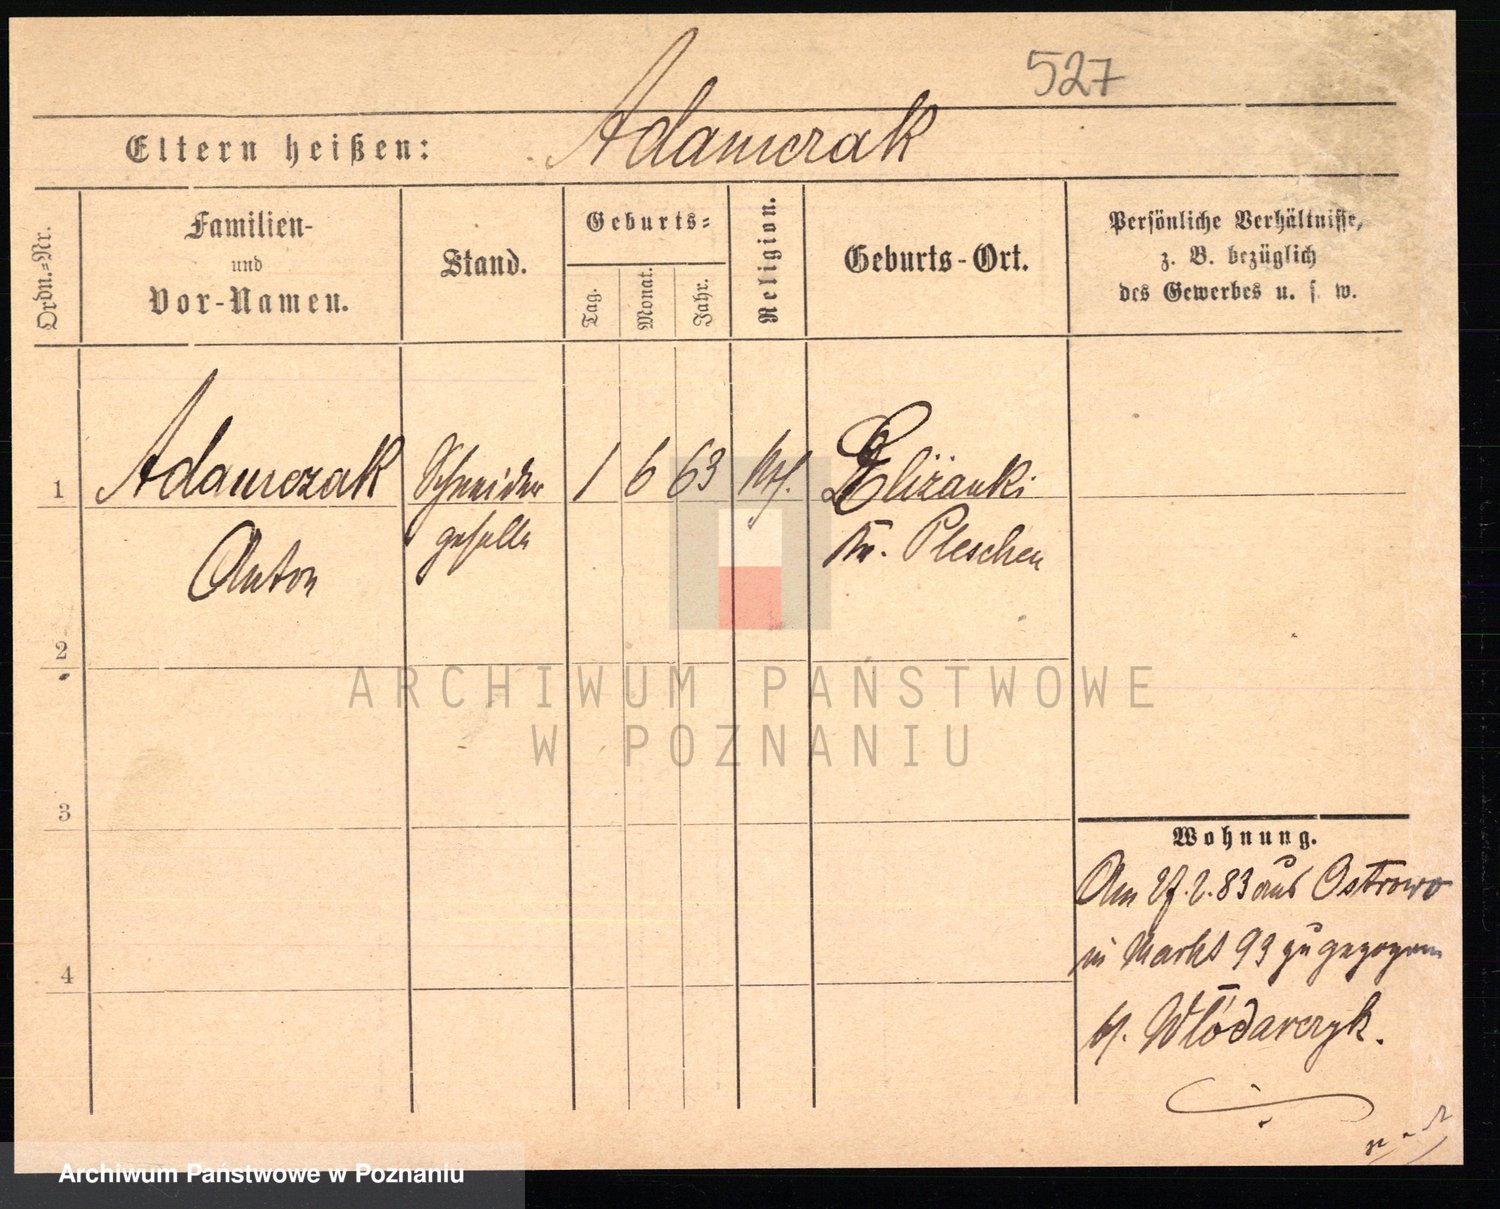 527
Eltern heißen: Adamczak
Ordn.=Nr.
Familien-
und
Vor-Namen.
Stand.
Geburts=
Tag.
Monat.
Jahr.
Religion.
Geburts-Ort.
Persönliche Verhältnisse,
z. B. bezüglich
des Gewerbes u. s. w.
1 Adamczak Schneider 1 6 63 Elizanki
Anton geselle Kr. Pleschen
2
3
4
Wohnung.
Am 27.2.83 aus Ostrowo
in Markt 93 zugezogen
b. Włódarczyk.
ARCHIWUM PAŃSTWOWE
W POZNANIU
Archiwum Państwowe w Poznaniu